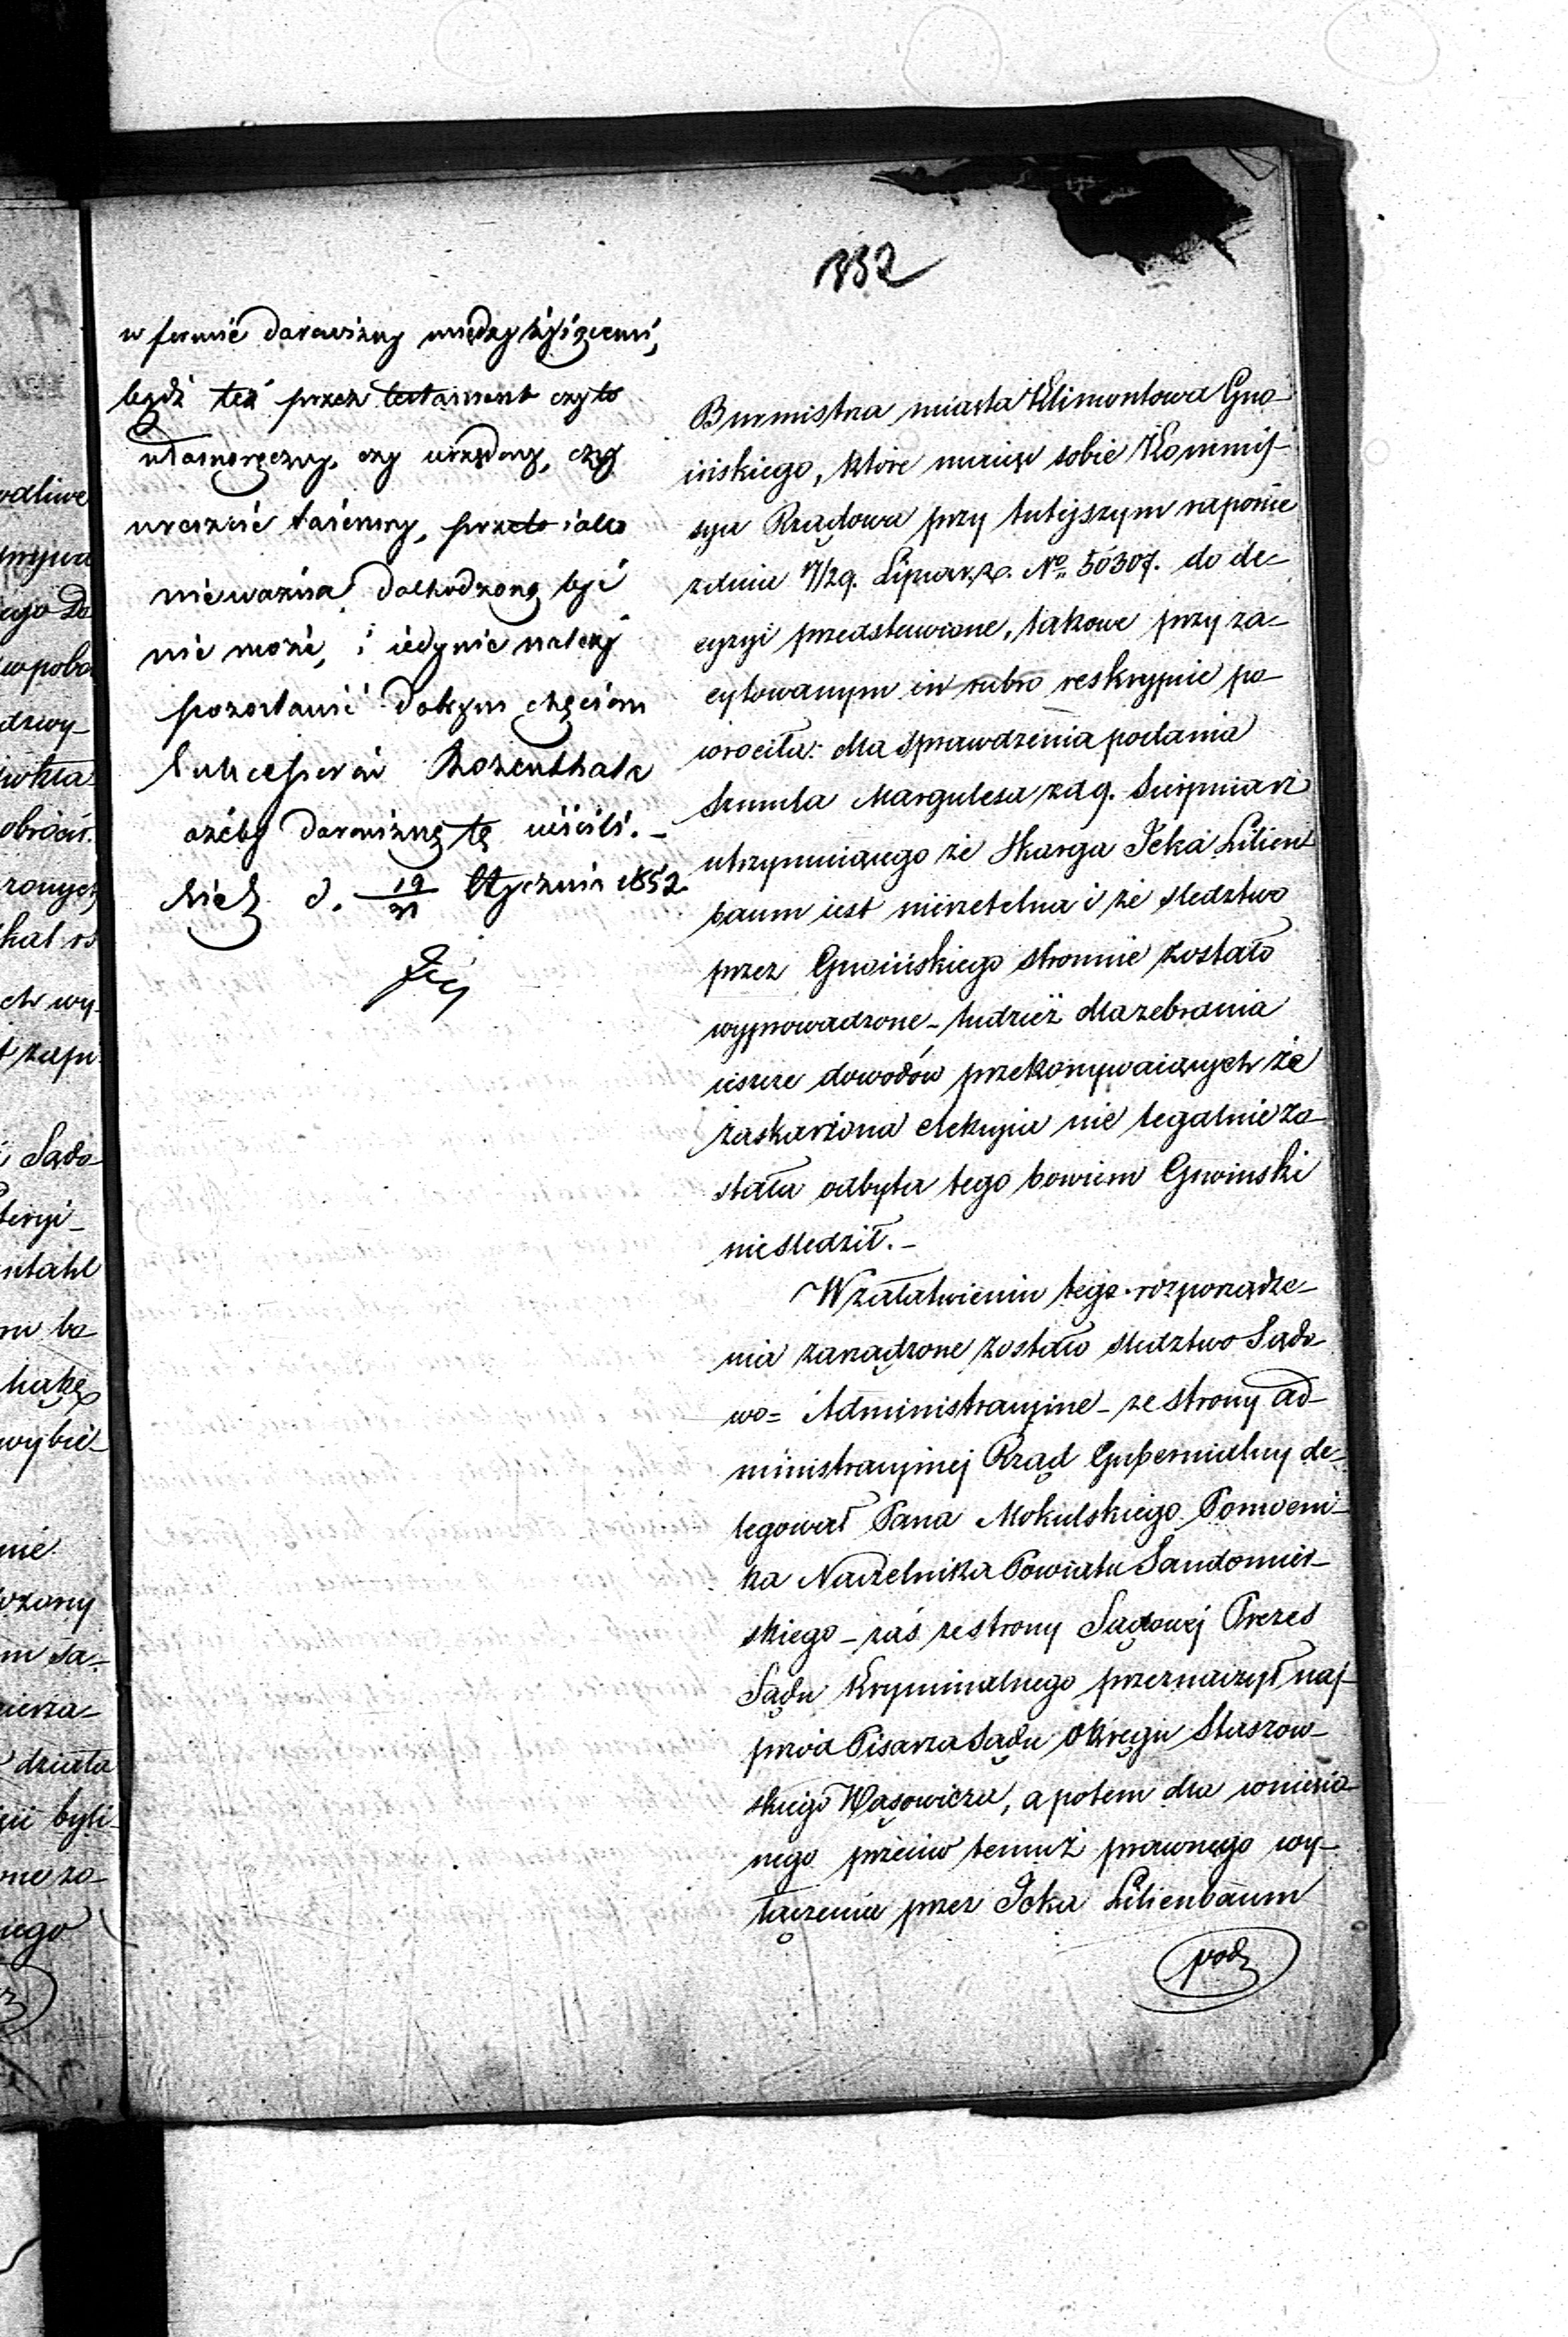 332
w formie darowizny między żyjącemi,
bądź też przez testament czyto
własnoręczny, czy urzędowy, czy
wreszcie tajemny, przeto iako
nieważna dochodzoną być
nie może, i iedynie należy
pozostawić dobrym chęciom
Sukcessorów Rozenthala
ażeby darowiznę tę uiścili. –
d. 19/31 Stycznia 1852
Burmistrza miasta Klimontowa Gno-
ińskiego, które maiąc sobie Kommis-
sya Rządowa przy tutejszym raporcie
z dnia 17/29. Lipca r.z. No 50307. do de-
cyzyi przedstawione, takowe przy za-
cytowanym in rubro reskrypcie po-
wróciła: dla sprawdzenia podania
Szmula Margulesa z d 9. Sierpnia r z
utrzymuiącego że skarga Icka Lilien
baum iest nierzetelna i że sledztwo
przez Gnoińskiego stronnie zostało
wyprowadzone – tudzież dla zebrania
ieszcze dowodów przekonywaiących że
zaskarżona elekcyia nie legalnie zo-
stała odbyta tego bowiem Gnoinski
nie sledził. –
W załatwieniu tego rozporządze-
nia zarządzone zostało sledztwo Sądo-
wo= Administracyine – ze strony ad-
ministracyinej Rząd Gubernialny de-
legował Pana Mokulskiego Pomocni-
ka Naczelnika Powiatu Sandomier-
skiego – zaś ze strony Sądowej Prezes
Sądu Kryminalnego przeznaczył naj-
przód Pisarza Sądu Okręgu Staszow-
skiego Wąsowicza, a potem dla wniesio-
nego przeciw temuż prawnego wy-
łączenia przez Icka Lilienbaum
pod